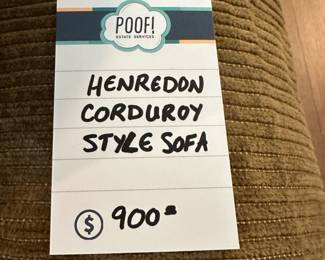 POOF!
ESTATE SERVICES
HENREDON
CORDUROY
STYLE SOFA
$ 900-